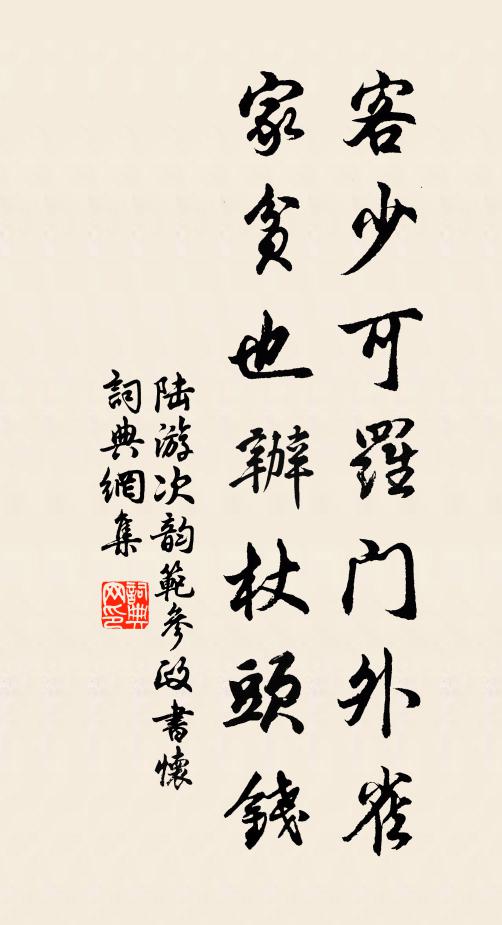 客少可羅门外雀
家貧也辦杖頭錢
陆游次韵範參政書懷
詞典網集
詞典网印